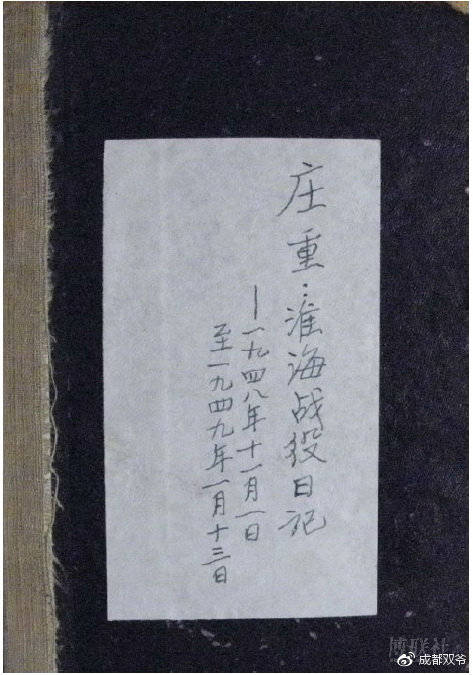 庄重：淮海战役日记
—一九四八年十一月一日
至一九四九年一月十三日
博联社
成都双爷